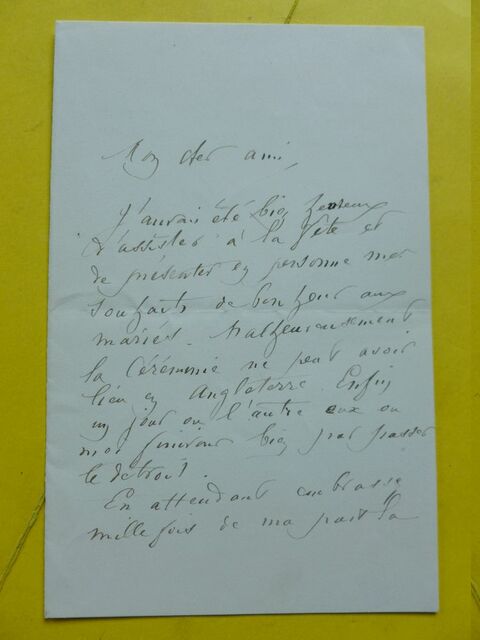 Mon cher ami,
J'aurais été bien heureux
d'assister à la fête et
de présenter en personne mes
souhaits de bonheur aux
mariés. Malheureusement
la Cérémonie ne peut avoir
lieu en Angleterre. Enfin
un jour ou l'autre eux ou
moi finirons bien par passer
le détroit.
En attendant embrasse
mille fois de ma part la